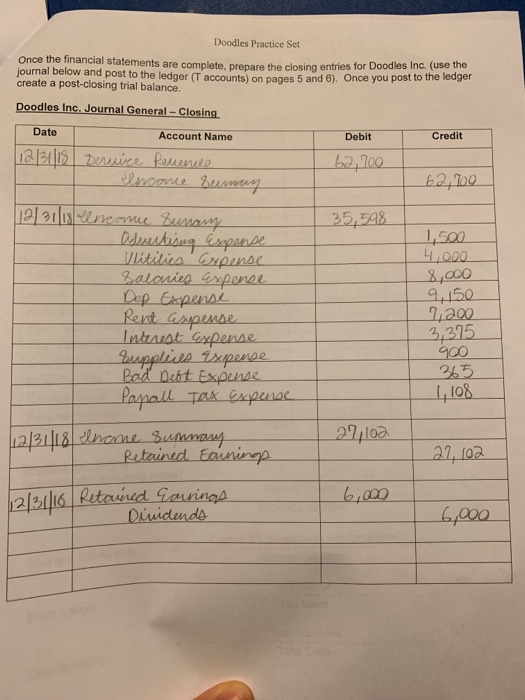 Doodles Practice Set
Once the financial statements are complete, prepare the closing entries for Doodles Inc. (use the
journal below and post to the ledger (T accounts) on pages 5 and 6). Once you post to the ledger
create a post-closing trial balance.
Doodles Inc. Journal General – Closing
Date Account Name Debit Credit
12/31/18 Service Revenues 62,700
Income Summary 62,700
12/31/18 Income Sumary 35,598
Advertising Expense 1,500
Utilities Expense 4,000
Salaries Expense 8,000
Dep Expense 9,150
Rent Expense 7,200
Interest Expense 3,375
Supplies Expense 900
Bad Debt Expense 365
Payroll Tax Expense 1,108
12/31/18 Income Summary 27,102
Retained Earnings 27,102
12/31/18 Retained Earnings 6,000
Dividends 6,000